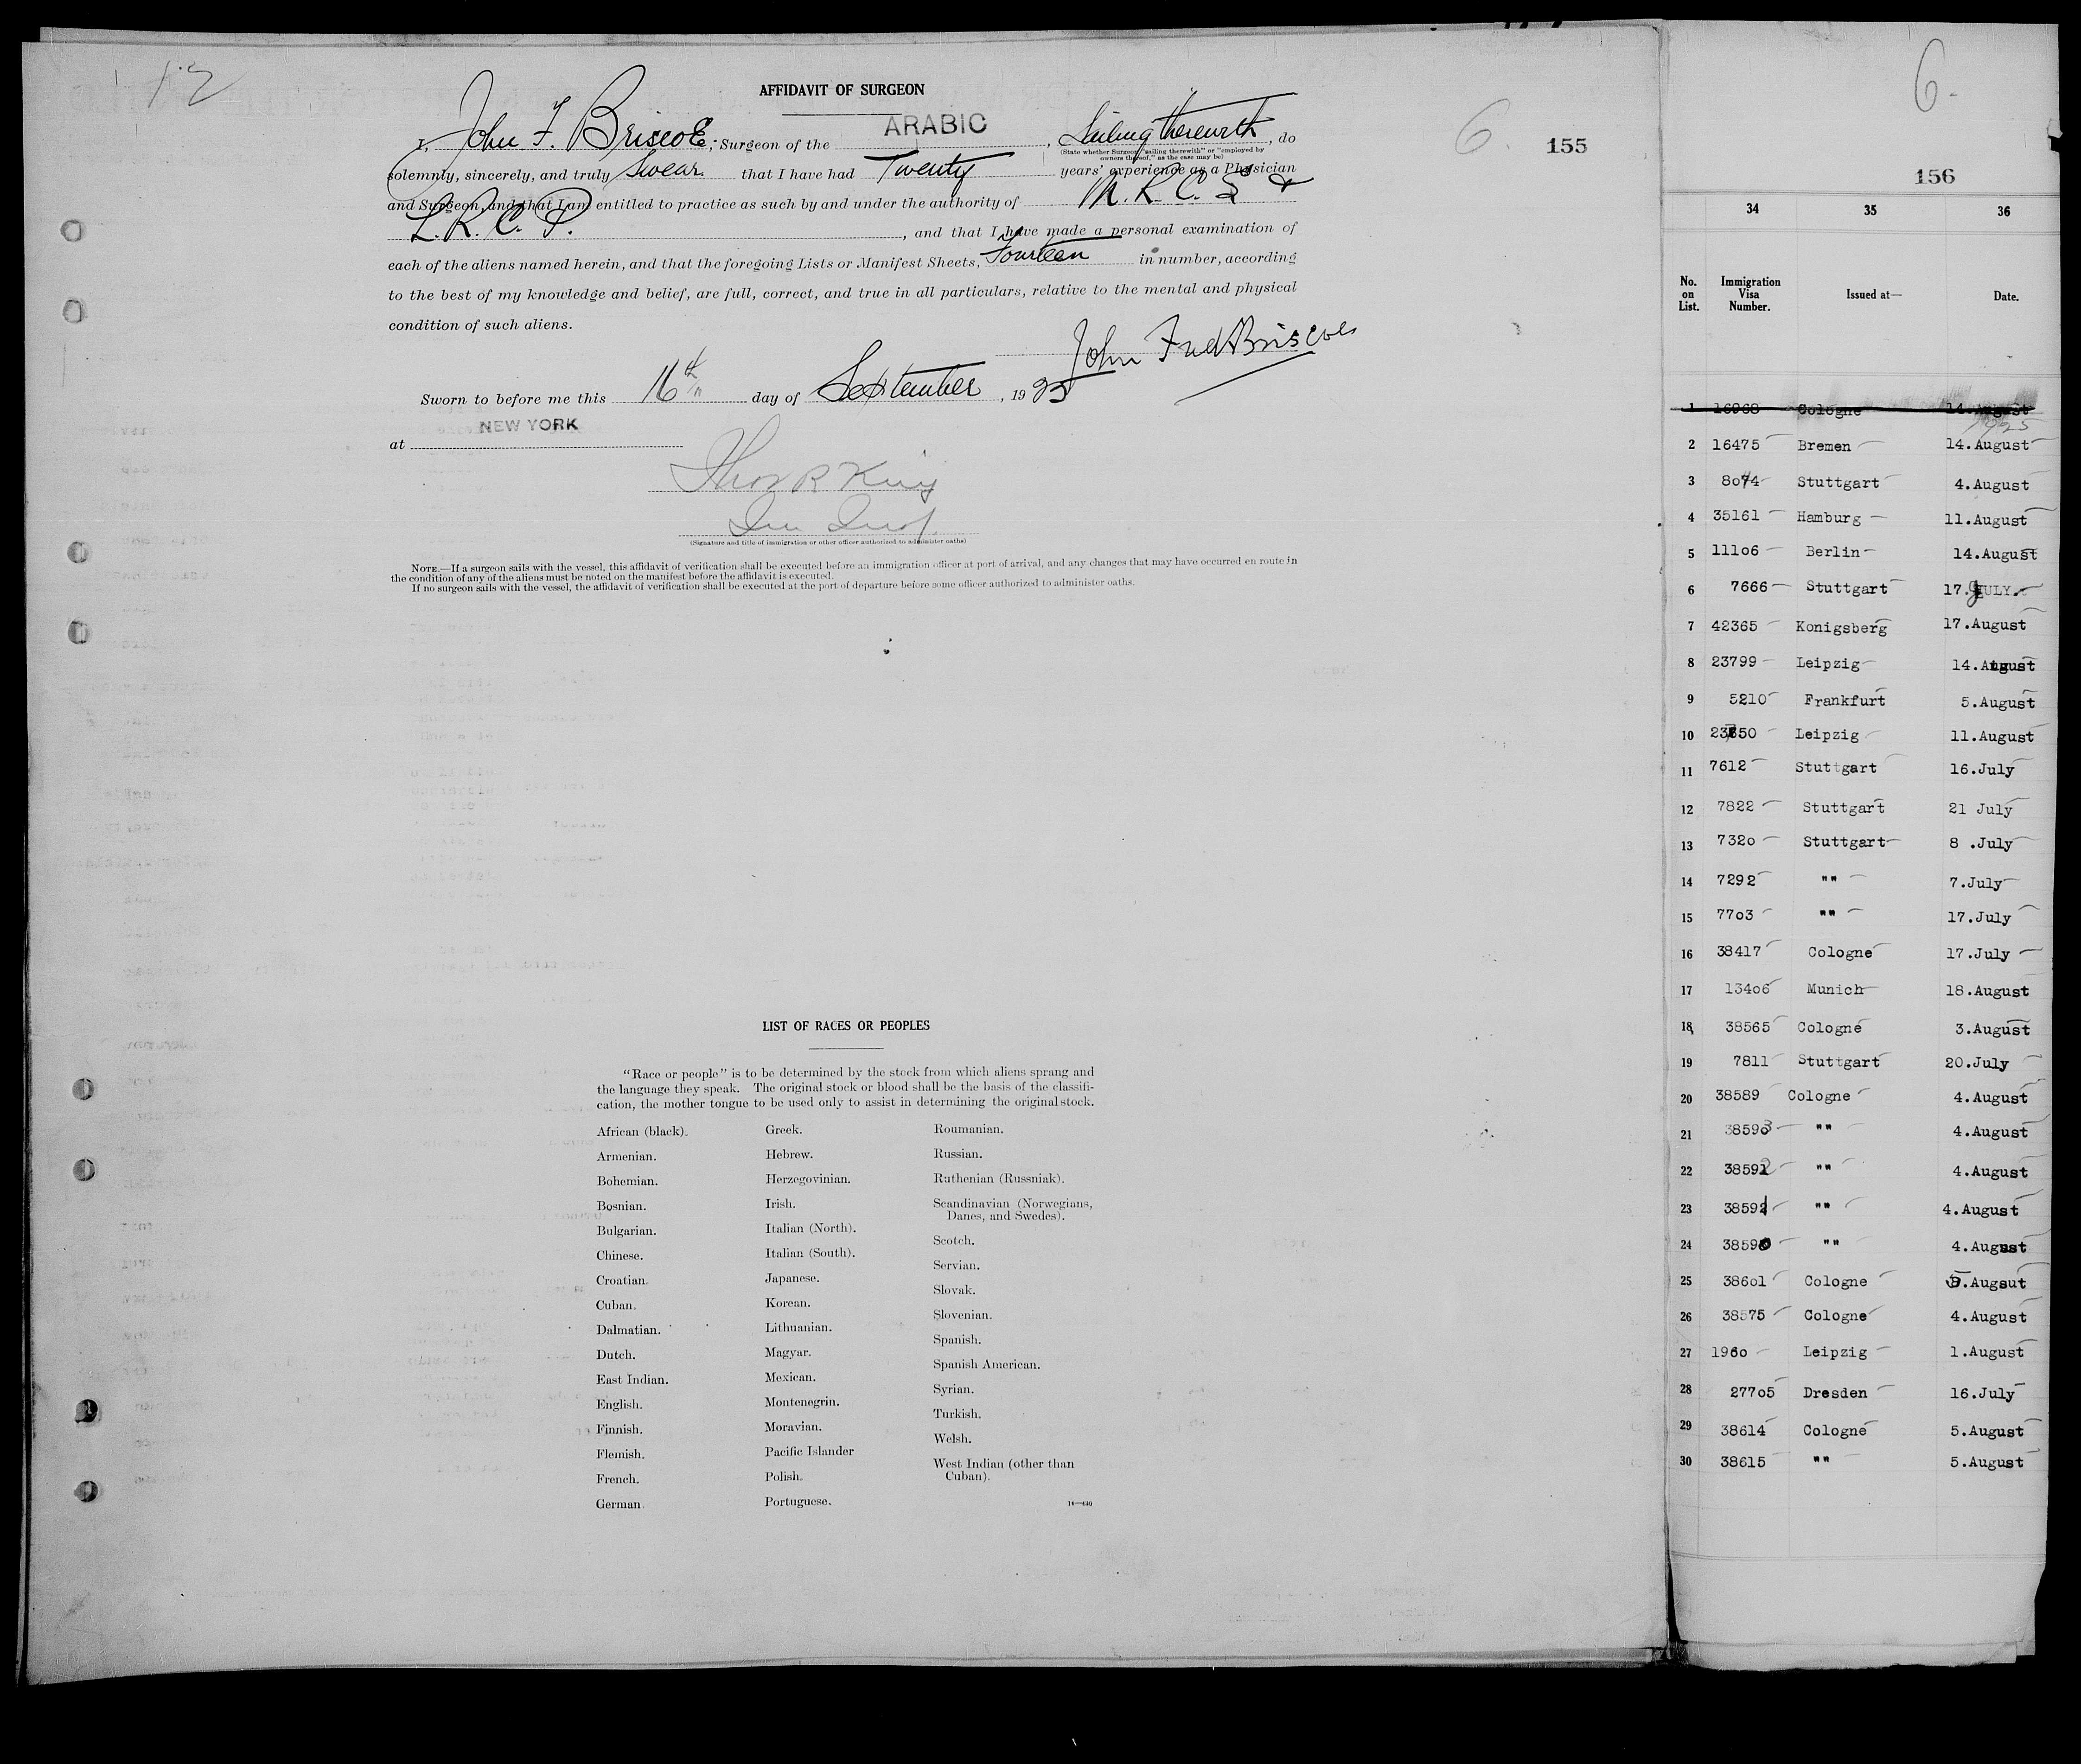 12
AFFIDAVIT OF SURGEON
I, John F. Briscoe, Surgeon of the ARABIC, Sailing therewith, do
(State whether Surgeon "sailing therewith" or "employed by
owners thereof," as the case may be)
solemnly, sincerely, and truly Swear that I have had Twenty years' experience as a Physician
and Surgeon, and that I am entitled to practice as such by and under the authority of M.R.C.S &
L.R.C.P., and that I have made a personal examination of
each of the aliens named herein, and that the foregoing Lists or Manifest Sheets, Fourteen in number, according
to the best of my knowledge and belief, are full, correct, and true in all particulars, relative to the mental and physical
condition of such aliens.
John Fred Briscoe
Sworn to before me this 16th day of September, 1925
at NEW YORK
Thos R King
(Signature and title of immigration or other officer authorized to administer oaths)
NOTE.—If a surgeon sails with the vessel, this affidavit of verification shall be executed before an immigration officer at port of arrival, and any changes that may have occurred en route in
the condition of any of the aliens must be noted on the manifest before the affidavit is executed.
If no surgeon sails with the vessel, the affidavit of verification shall be executed at the port of departure before some officer authorized to administer oaths.
6. 155
LIST OF RACES OR PEOPLES
"Race or people" is to be determined by the stock from which aliens sprang and
the language they speak. The original stock or blood shall be the basis of the classifi-
cation, the mother tongue to be used only to assist in determining the original stock.
African (black).
Armenian.
Bohemian.
Bosnian.
Bulgarian.
Chinese.
Croatian.
Cuban.
Dalmatian.
Dutch.
East Indian.
English.
Finnish.
Flemish.
French.
German.
Greek.
Hebrew.
Herzegovinian.
Irish.
Italian (North).
Italian (South).
Japanese.
Korean.
Lithuanian.
Magyar.
Mexican.
Montenegrin.
Moravian.
Pacific Islander
Polish.
Portuguese.
Roumanian.
Russian.
Ruthenian (Russniak).
Scandinavian (Norwegians,
Danes, and Swedes).
Scotch.
Servian.
Slovak.
Slovenian.
Spanish.
Spanish American.
Syrian.
Turkish.
Welsh.
West Indian (other than
Cuban).
14—430
6.
156
34 35 36
No. on List. Immigration Visa Number. Issued at— Date.
1 16968 Cologne 14.August
1925
2 16475 Bremen 14.August
3 8074 Stuttgart 4.August
4 35161 Hamburg 11.August
5 11106 Berlin 14.August
6 7666 Stuttgart 17.JULY.
7 42365 Konigsberg 17.August
8 23799 Leipzig 14.August
9 5210 Frankfurt 5.August
10 23750 Leipzig 11.August
11 7612 Stuttgart 16.July
12 7822 Stuttgart 21 July
13 7320 Stuttgart 8 .July
14 7292 "" 7.July
15 7703 "" 17.July
16 38417 Cologne 17.July
17 13406 Munich 18.August
18 38565 Cologne 3.August
19 7811 Stuttgart 20.July
20 38589 Cologne 4.August
21 38593 "" 4.August
22 38592 "" 4.August
23 38591 "" 4.August
24 38590 "" 4.August
25 38601 Cologne 5.Augsut
26 38575 Cologne 4.August
27 1960 Leipzig 1.August
28 27705 Dresden 16.July
29 38614 Cologne 5.August
30 38615 "" 5.August